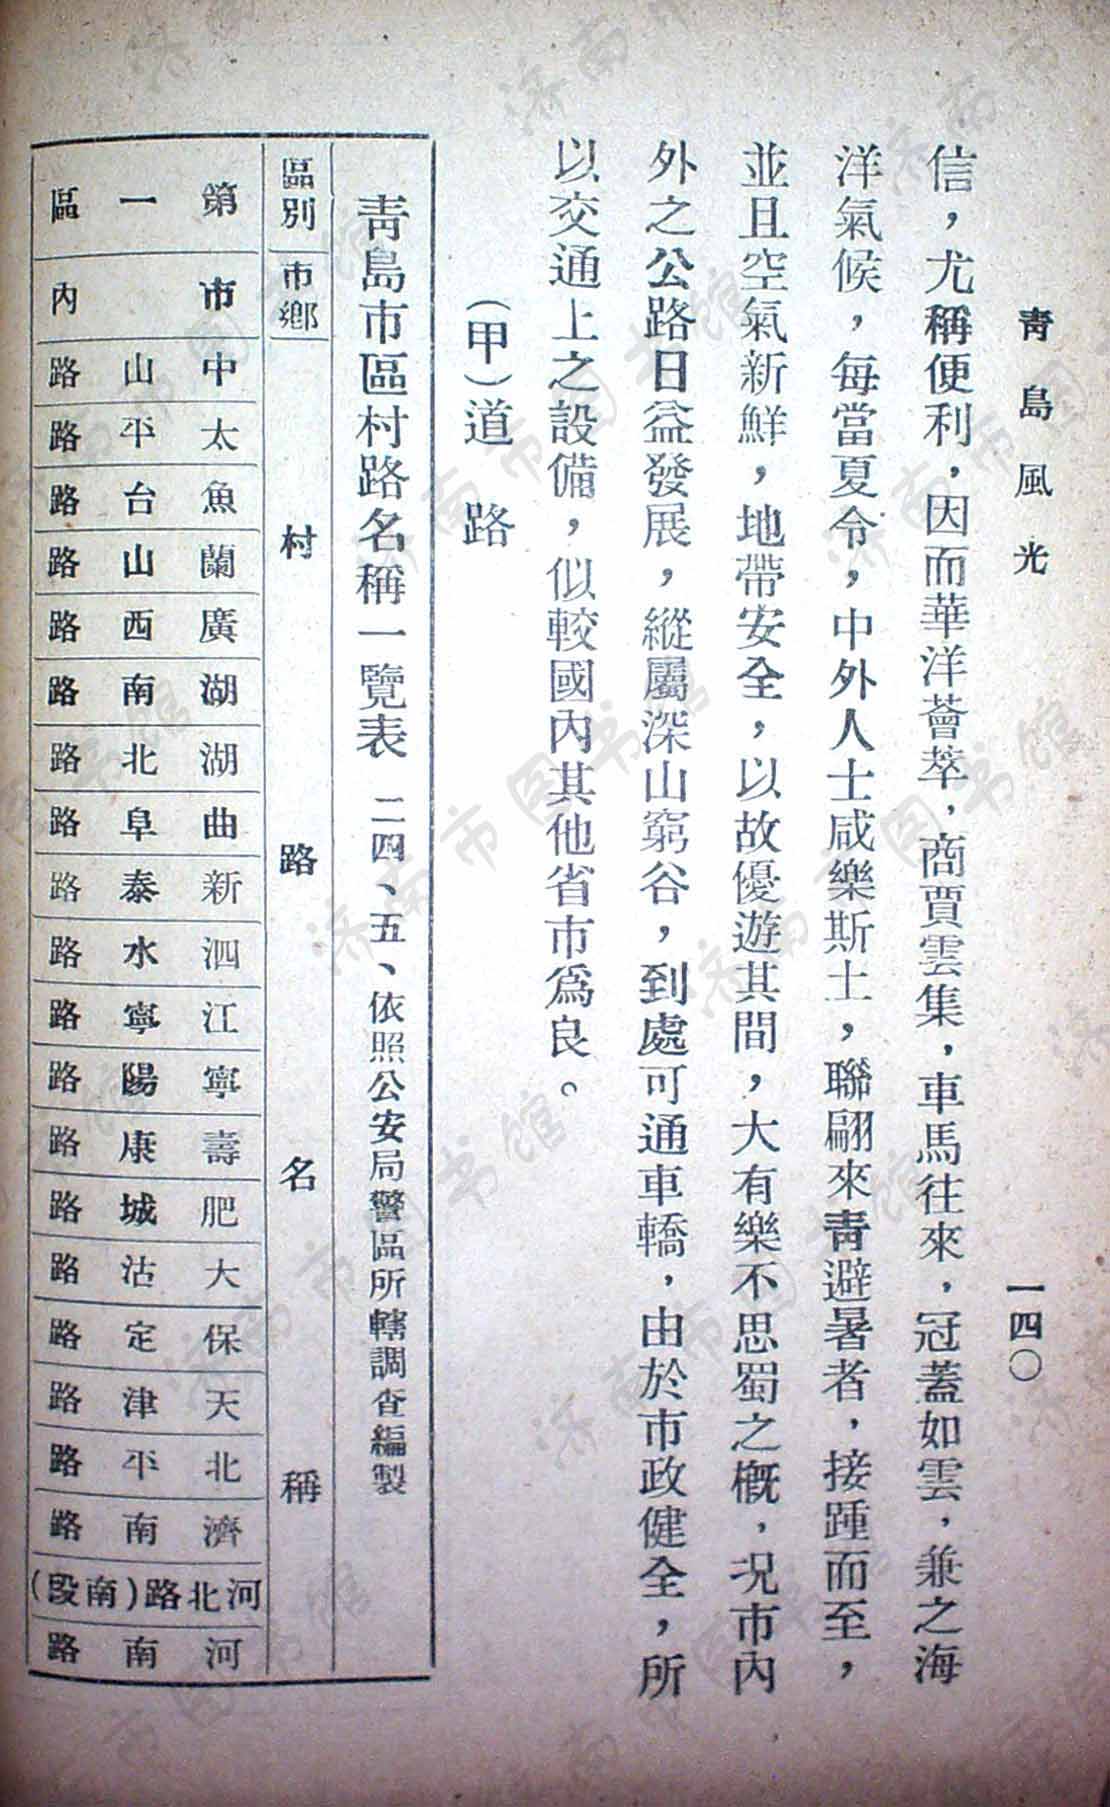 青島風光
一四〇
信，尤稱便利，因而華洋薈萃，商賈雲集，車馬往來，冠蓋如雲，兼之海
洋氣候，每當夏令，中外人士咸樂斯土，聯翩來青避暑者，接踵而至，
並且空氣新鮮，地帶安全，以故優遊其間，大有樂不思蜀之概，况市內
外之公路日益發展，縱屬深山窮谷，到處可通車轎，由於市政健全，所
以交通上之設備，似較國內其他省市爲良。
（甲）道路
青島市區村路名稱一覽表 二四、五、依照公安局警區所轄調查編製
區別 市鄉 村路名稱
第一區 市內
中山路
太平路
魚台路
蘭山路
廣西路
湖南路
湖北路
曲阜路
新泰路
泗水路
江寧路
寧陽路
壽康路
肥城路
大沽路
保定路
天津路
北平路
濟南路
河北路（南段）
河南路
济南市图书馆